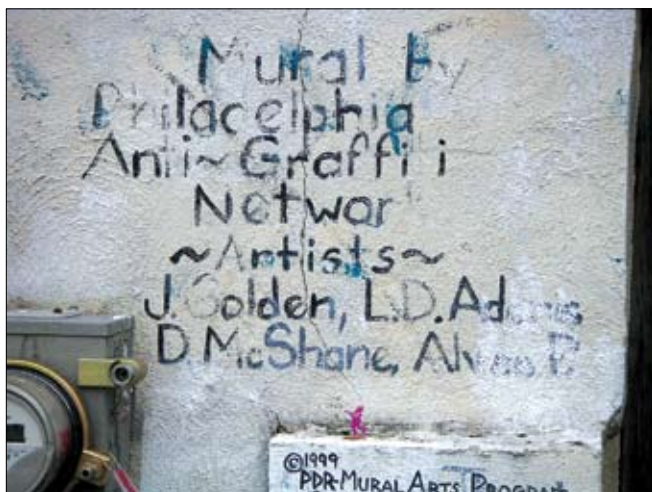 Mural by
Philadelphia
Anti~Graffiti
Networ
~Artists~
J. Golden, L.D. Adams
D. McShane,
©1999
PDR-MURAL ARTS PROGRAM